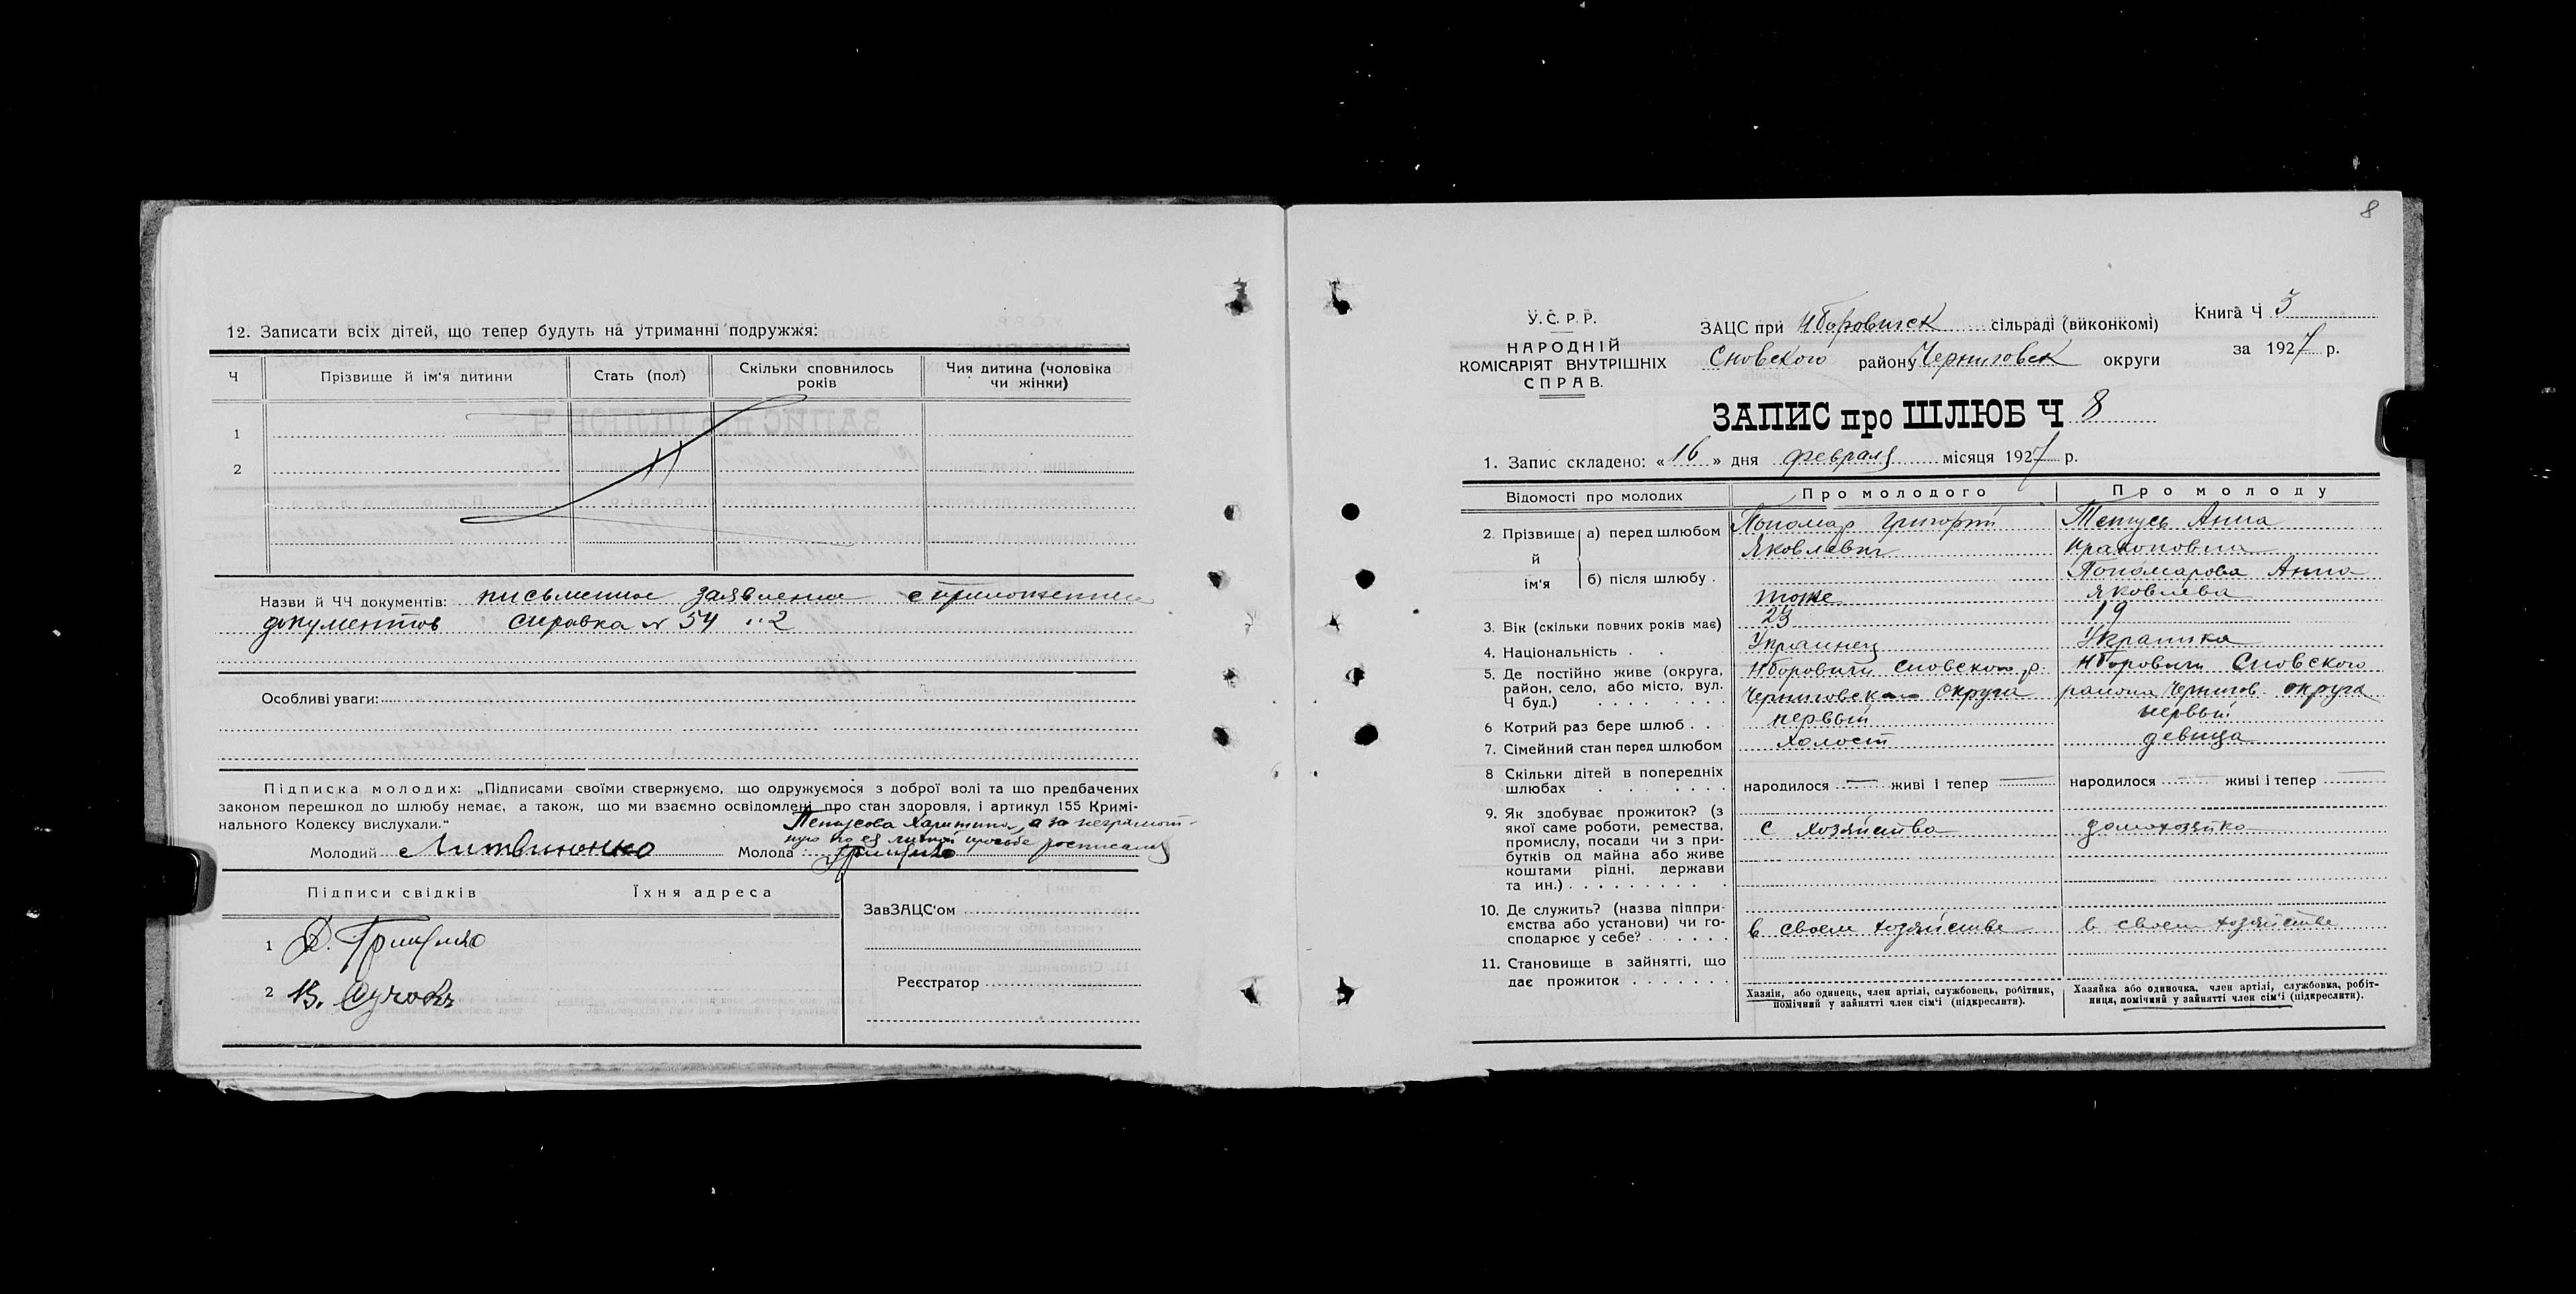 12. Записати всіх дітей, що тепер будуть на утриманні подружжя:
Ч
Прізвище й ім'я дитини
Стать (пол)
Скільки сповнилось років
Чия дитина (чоловіка чи жінки)
1
2
Назви й ЧЧ документів: письменное заявление с приложением
документов справка № 54 " 2
Особливі уваги:
Підписка молодих: „Підписами своїми ствержуємо, що одружуємося з доброї волі та що предбачених
законом перешкод до шлюбу немає, а також, що ми взаємно освідомлені про стан здоровля, і артикул 155 Кримі-
нального Кодексу вислухали."
Харитина, а за неграмот-
ную по ея личной просьбе росписался
Молодий Литвиненко Молода
Підписи свідків
Їхня адреса
1
2
ЗавЗАЦС'ом
Реєстратор
8
У. С. Р. Р.
НАРОДНІЙ
КОМІСАРІЯТ ВНУТРІШНІХ
СПРАВ.
ЗАЦС при Нборовическ сільраді (виконкомі)
Сновского району Черниговск округи
Книга Ч 3
за 1927 р.
ЗАПИС про ШЛЮБ Ч 8
1. Запис складено: « 16 » дня февраля місяця 1927 р.
Відомості про молодих
Про молодого
Про молоду
2. Прізвище й ім'я
а) перед шлюбом
Пономар Григорий
Яковлевич
Анна
Пракоповна
б) після шлюбу
тоже
Пономарова Анна
Яковлева
3. Вік (скільки повних років має)
23
19
4. Національність
Украинец
Украинка
5. Де постійно живе (округа,
район, село, або місто, вул.
Ч буд.)
Нборовичи Сновского р.
Черниговского округа
Нборовичи Сновского
района Чернигов округа
6 Котрий раз бере шлюб
первый
первый
7. Сімейний стан перед шлюбом
холост
девица
8 Скільки дітей в попередніх
шлюбах
народилося — живі і тепер —
народилося — живі і тепер —
9. Як здобуває прожиток? (з
якої саме роботи, ремества,
промислу, посади чи з при-
бутків од майна або живе
коштами рідні, держави
та ин.)
с хозяйства
домохозяйка
10. Де служить? (назва піппри-
ємства або установи) чи го-
сподарює у себе?
в своем хозяйстве
в своем хозяйстве
11. Становище в зайнятті, що
дає прожиток
Хазяїн, або одинець, член артілі, службовець, робітник,
помічний у зайнятті член сім'ї (підкреслити).
Хазяйка або одиночка, член артілі, службовка, робіт-
ниця, помічний у зайнятті член сім'ї (підкреслити).